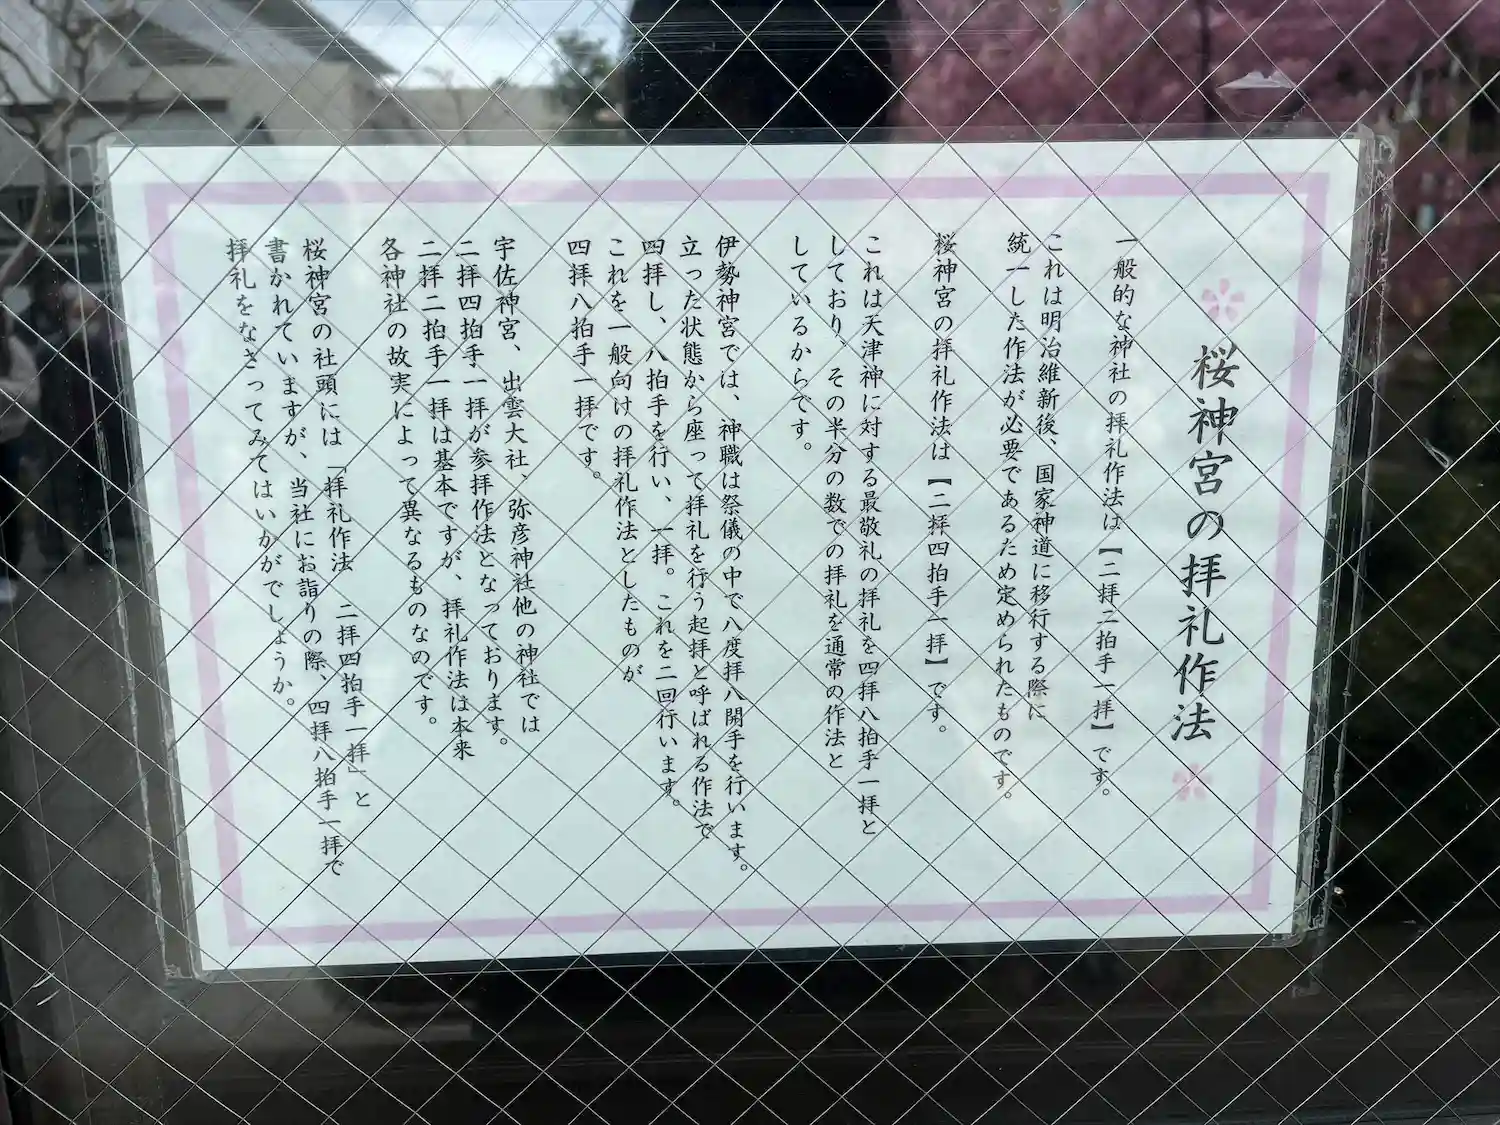 桜神宮の拝礼作法
一般的な神社の拝礼作法は【二拝二拍手一拝】です。
これは明治維新後、国家神道に移行する際に
統一した作法が必要であるため定められたものです。
桜神宮の拝礼作法は【二拝四拍手一拝】です。
これは天津神に対する最敬礼の拝礼を四拝八拍手一拝と
しており、その半分の数での拝礼を通常の作法と
しているからです。
伊勢神宮では、神職は祭儀の中で八度拝八開手を行います。
立った状態から座って拝礼を行う起拝と呼ばれる作法で
四拝し、八拍手を行い、一拝。これを二回行います。
これを一般向けの拝礼作法としたものが
四拝八拍手一拝です。
宇佐神宮、出雲大社、弥彦神社他の神社では
二拝四拍手一拝が参拝作法となっております。
二拝二拍手一拝は基本ですが、拝礼作法は本来
各神社の故実によって異なるものなのです。
桜神宮の社頭には「拝礼作法　二拝四拍手一拝」と
書かれていますが、当社にお詣りの際、四拝八拍手一拝で
拝礼をなさってみてはいかがでしょうか。